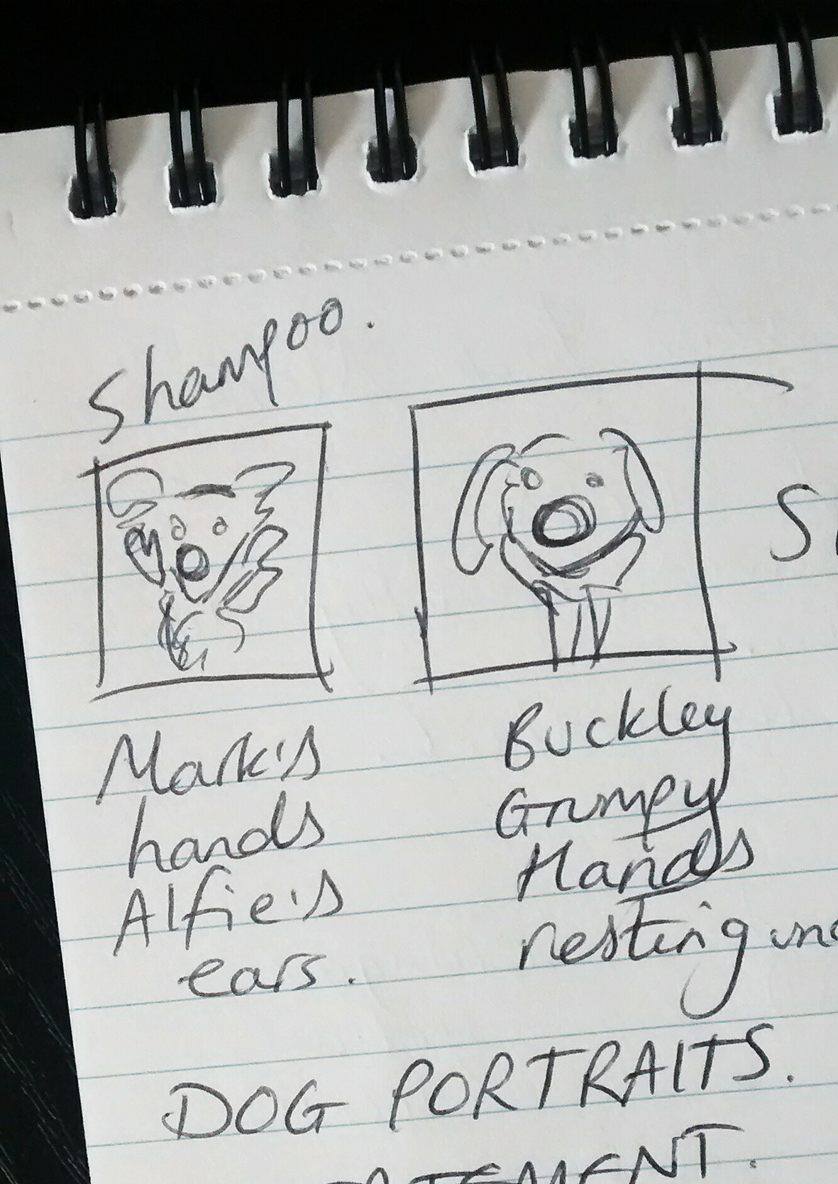 Shampoo.
Mark's
hands
Alfie's
ears.
Buckley
Grumpy
Hands
resting
DOG PORTRAITS.